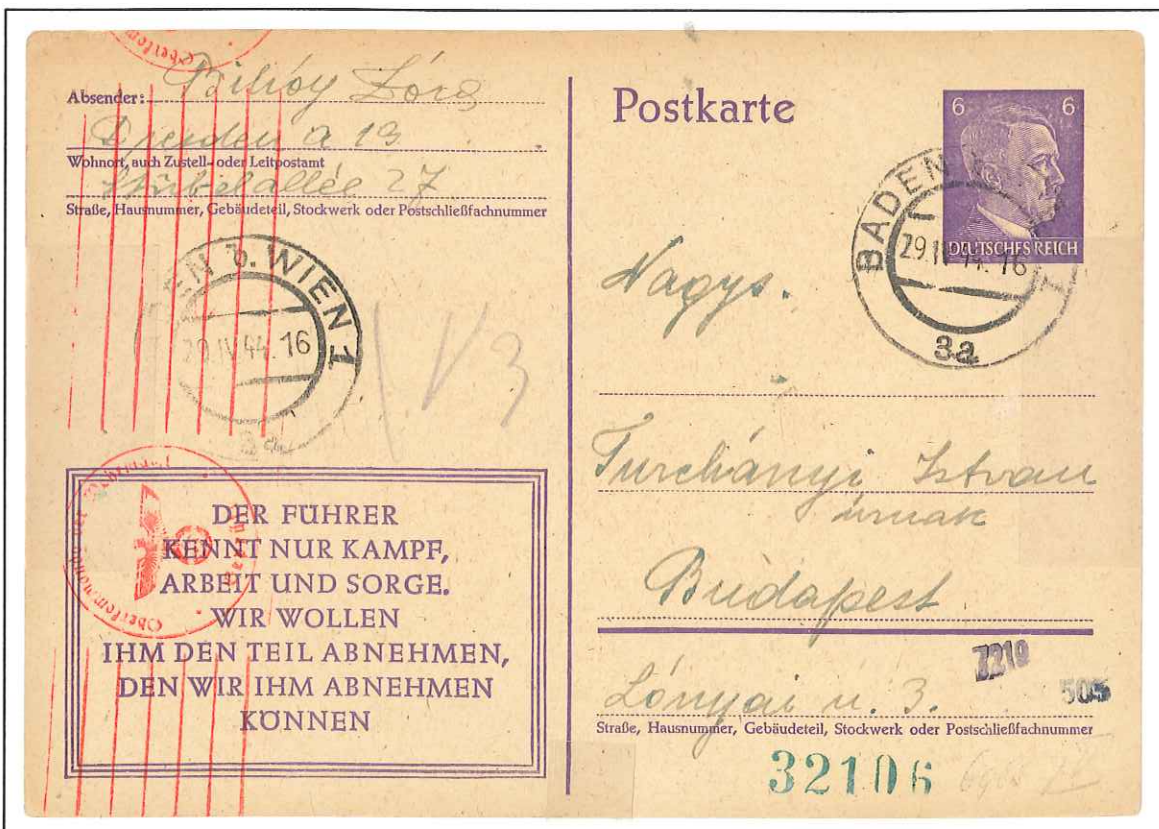 Absender:
Dresden A 19
Wohnort, auch Zustell- oder Leitpostamt
Stübelallée 27
Straße, Hausnummer, Gebäudeteil, Stockwerk oder Postschließfachnummer
EN b. WIEN 1
29.IV.44.16
DER FÜHRER
KENNT NUR KAMPF,
ARBEIT UND SORGE.
WIR WOLLEN
IHM DEN TEIL ABNEHMEN,
DEN WIR IHM ABNEHMEN
KÖNNEN
Postkarte
6 6
DEUTSCHES REICH
BADEN
29.IV.44.16
3a
Nagys.
Turchányi Istvan
úrnak
Budapest
7219
Lónyai u. 3.
505
Straße, Hausnummer, Gebäudeteil, Stockwerk oder Postschließfachnummer
32106